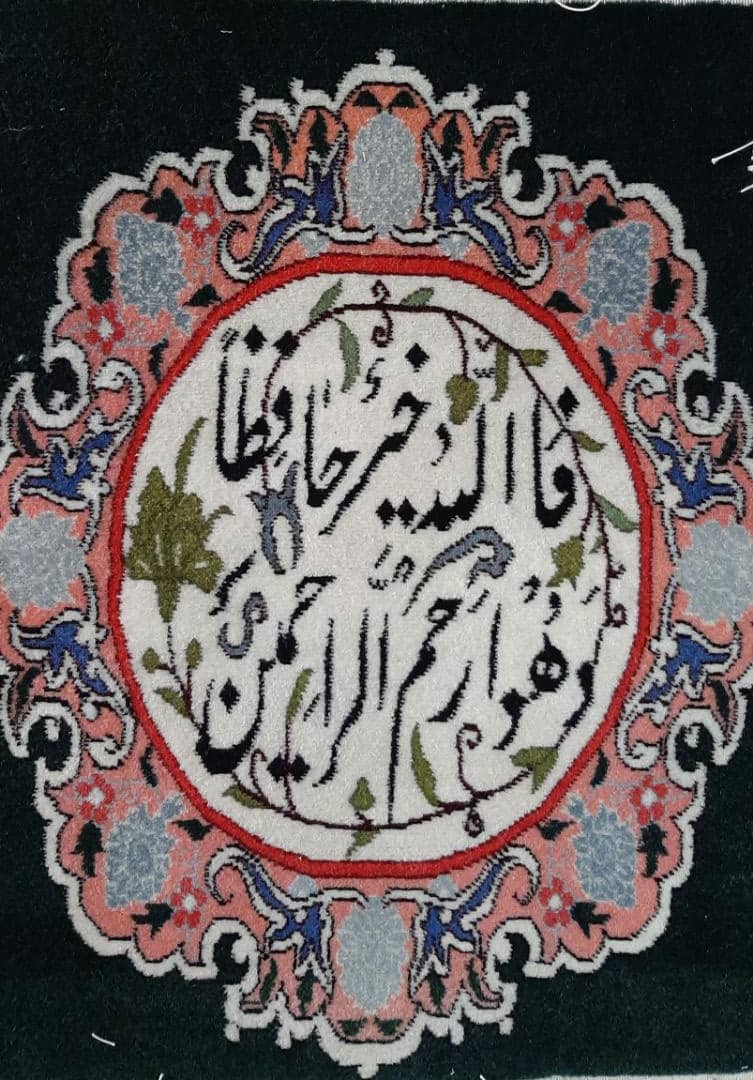 فالله خیر حافظاً
و هو ارحم الراحمین